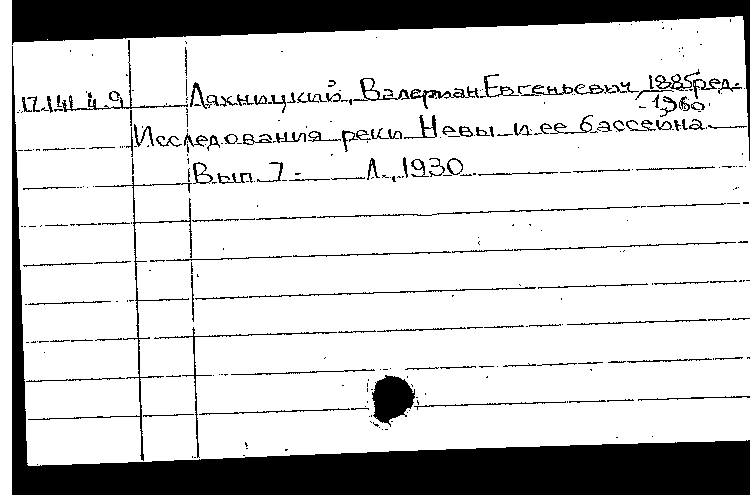 17.141.4.9 Ляхницкий, Валериан Евгеньевич, 1885 ред.
-1960
Исследования реки Невы и ее бассейна.
Вып. 7- Л., 1930